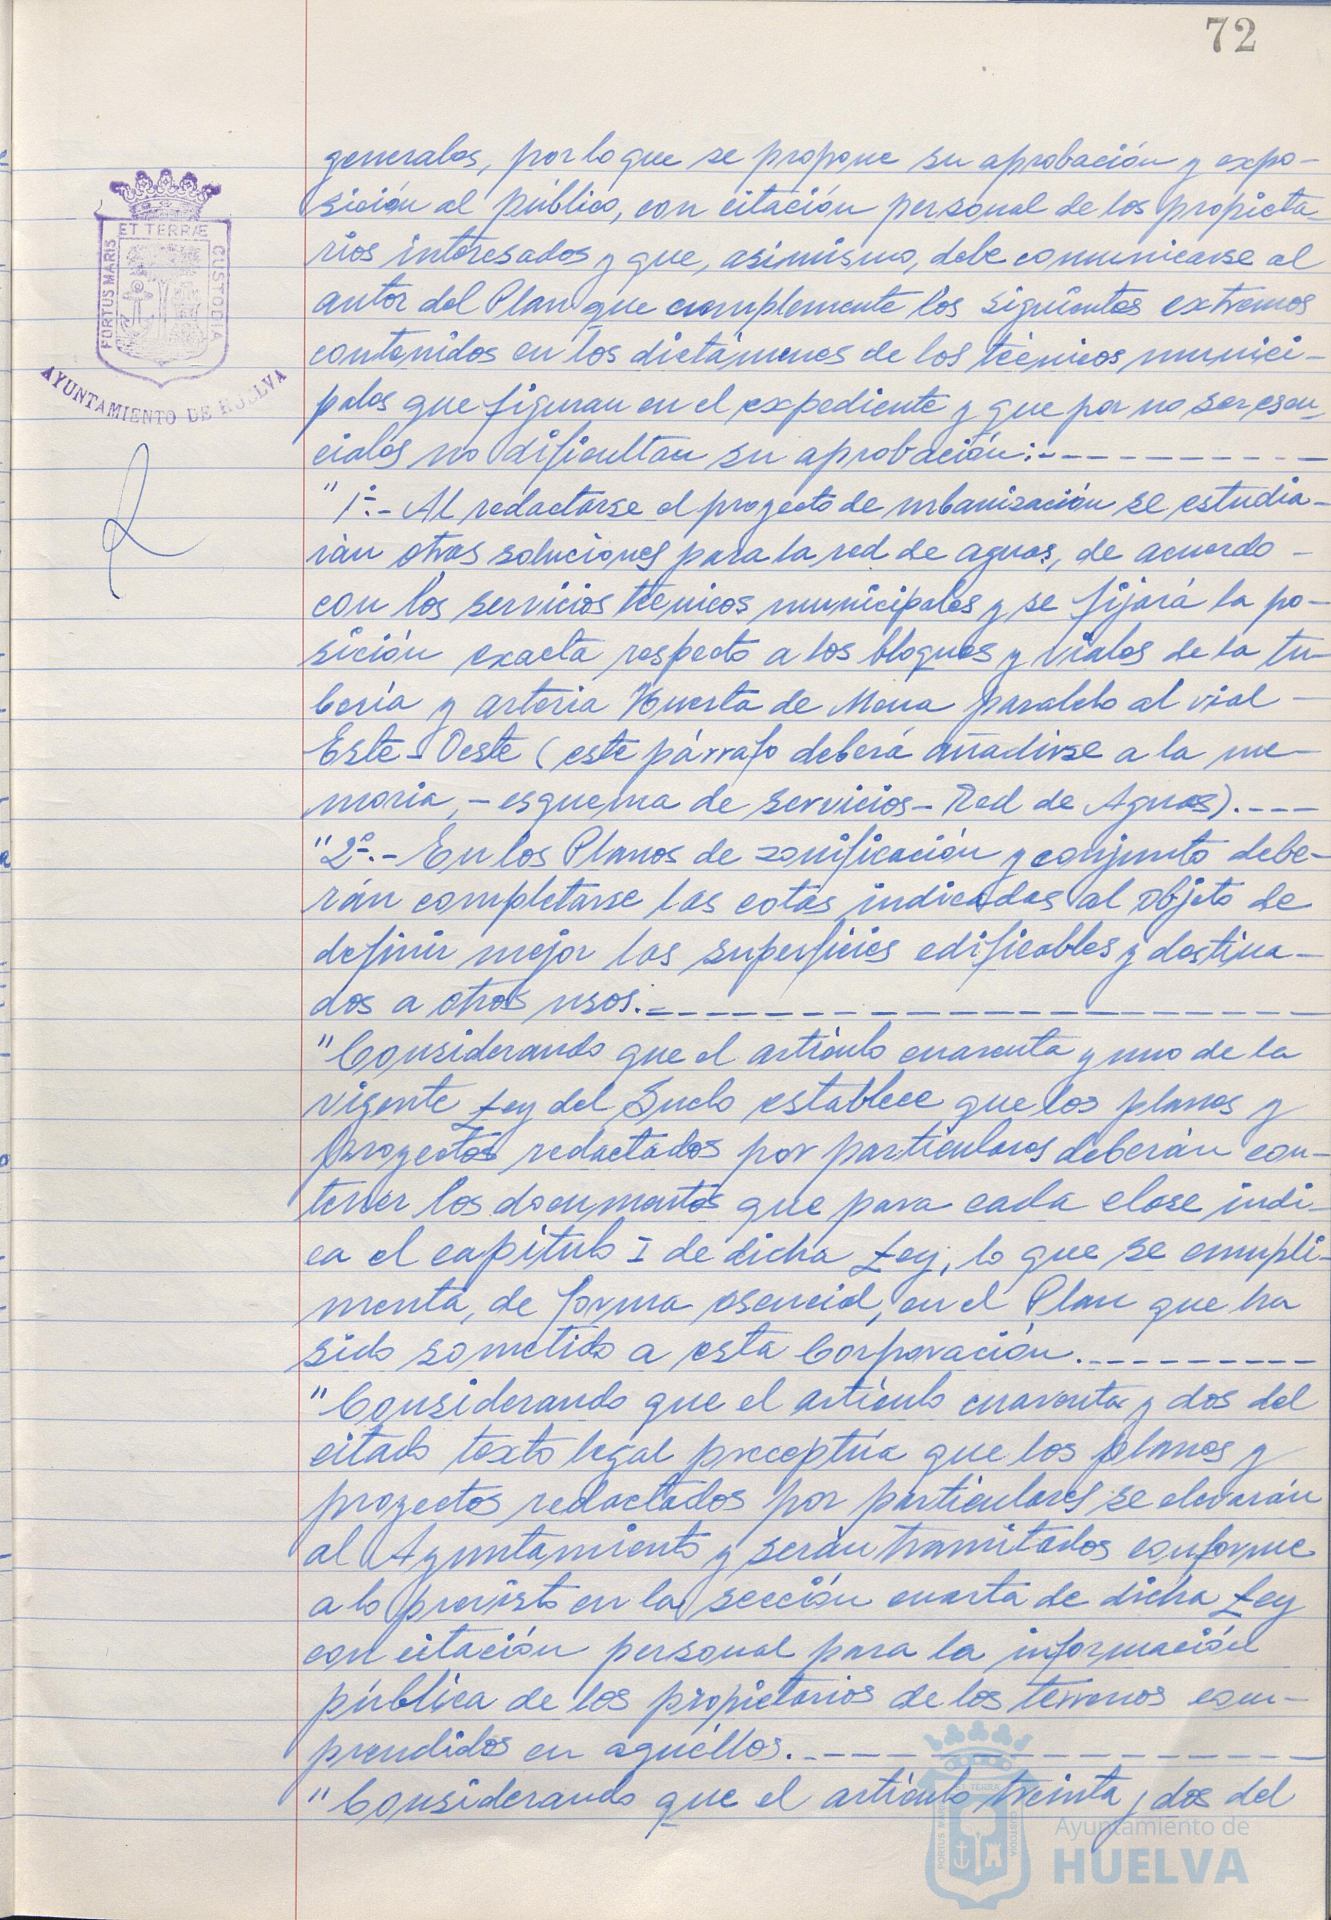 72
generales, por lo que se propone su aprobación y expo-
sición al público, con citación personal de los propieta-
rios interesados y que, asimismo, debe comunicarse al
autor del Plan que complemente los siguientes extremos
contenidos en los dictámenes de los técnicos munici-
pales que figuran en el expediente y que por no ser esen-
ciales no dificultan su aprobación:-----------
"1º.- Al redactarse el proyecto de urbanización se estudia-
rán otras soluciones para la red de aguas, de acuerdo -
con los servicios técnicos municipales y se fijará la po-
sición exacta respecto a los bloques y viales de la tu-
bería y arteria Huerta de Mena paralelo al vial -
Este - Oeste (este párrafo deberá añadirse a la me-
moria, - esquema de servicios - Red de Aguas).----
"2º.- En los Planos de zonificación y conjunto debe-
rán completarse las cotas indicadas al objeto de
definir mejor las superficies edificables y destina-
dos a otros usos.---------------
"Considerando que el artículo cuarenta y uno de la
vigente Ley del Suelo establece que los planes y
proyectos redactados por particulares deberán con-
tener los documentos que para cada clase indi-
ca el capítulo I de dicha Ley, lo que se cumpli-
menta, de forma esencial, en el Plan que ha
sido sometido a esta Corporación.----------
"Considerando que el artículo cuarenta y dos del
citado texto legal preceptúa que los planes y
proyectos redactados por particulares se elevarán
al Ayuntamiento y serán tramitados conforme
a lo previsto en la sección cuarta de dicha Ley
con citación personal para la información
pública de los propietarios de los terrenos com-
prendidos en aquéllos.---------------
"Considerando que el artículo treinta y dos del
PORTUS MARIS ET TERRÆ CUSTODIA
AYUNTAMIENTO DE HUELVA
PORTUS MARIS ET TERRÆ CUSTODIA
Ayuntamiento de
HUELVA